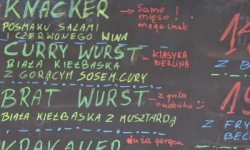 KNACKER
Samo
mięso!
POSMAKU SALAMI
mega smak
I CZERWONEGO WINA
CURRY WURST
KLASYKA
BERLINA
BIAŁA KIEŁBASKA
Z GORĄCYM SOSEM CURY
BRAT WURST
z grilla
BIAŁA KIEŁBASKA Z MUSZTARDĄ
KRAKAUER
duża gorąca
14
Z
BE
19
Z FRY
BEC